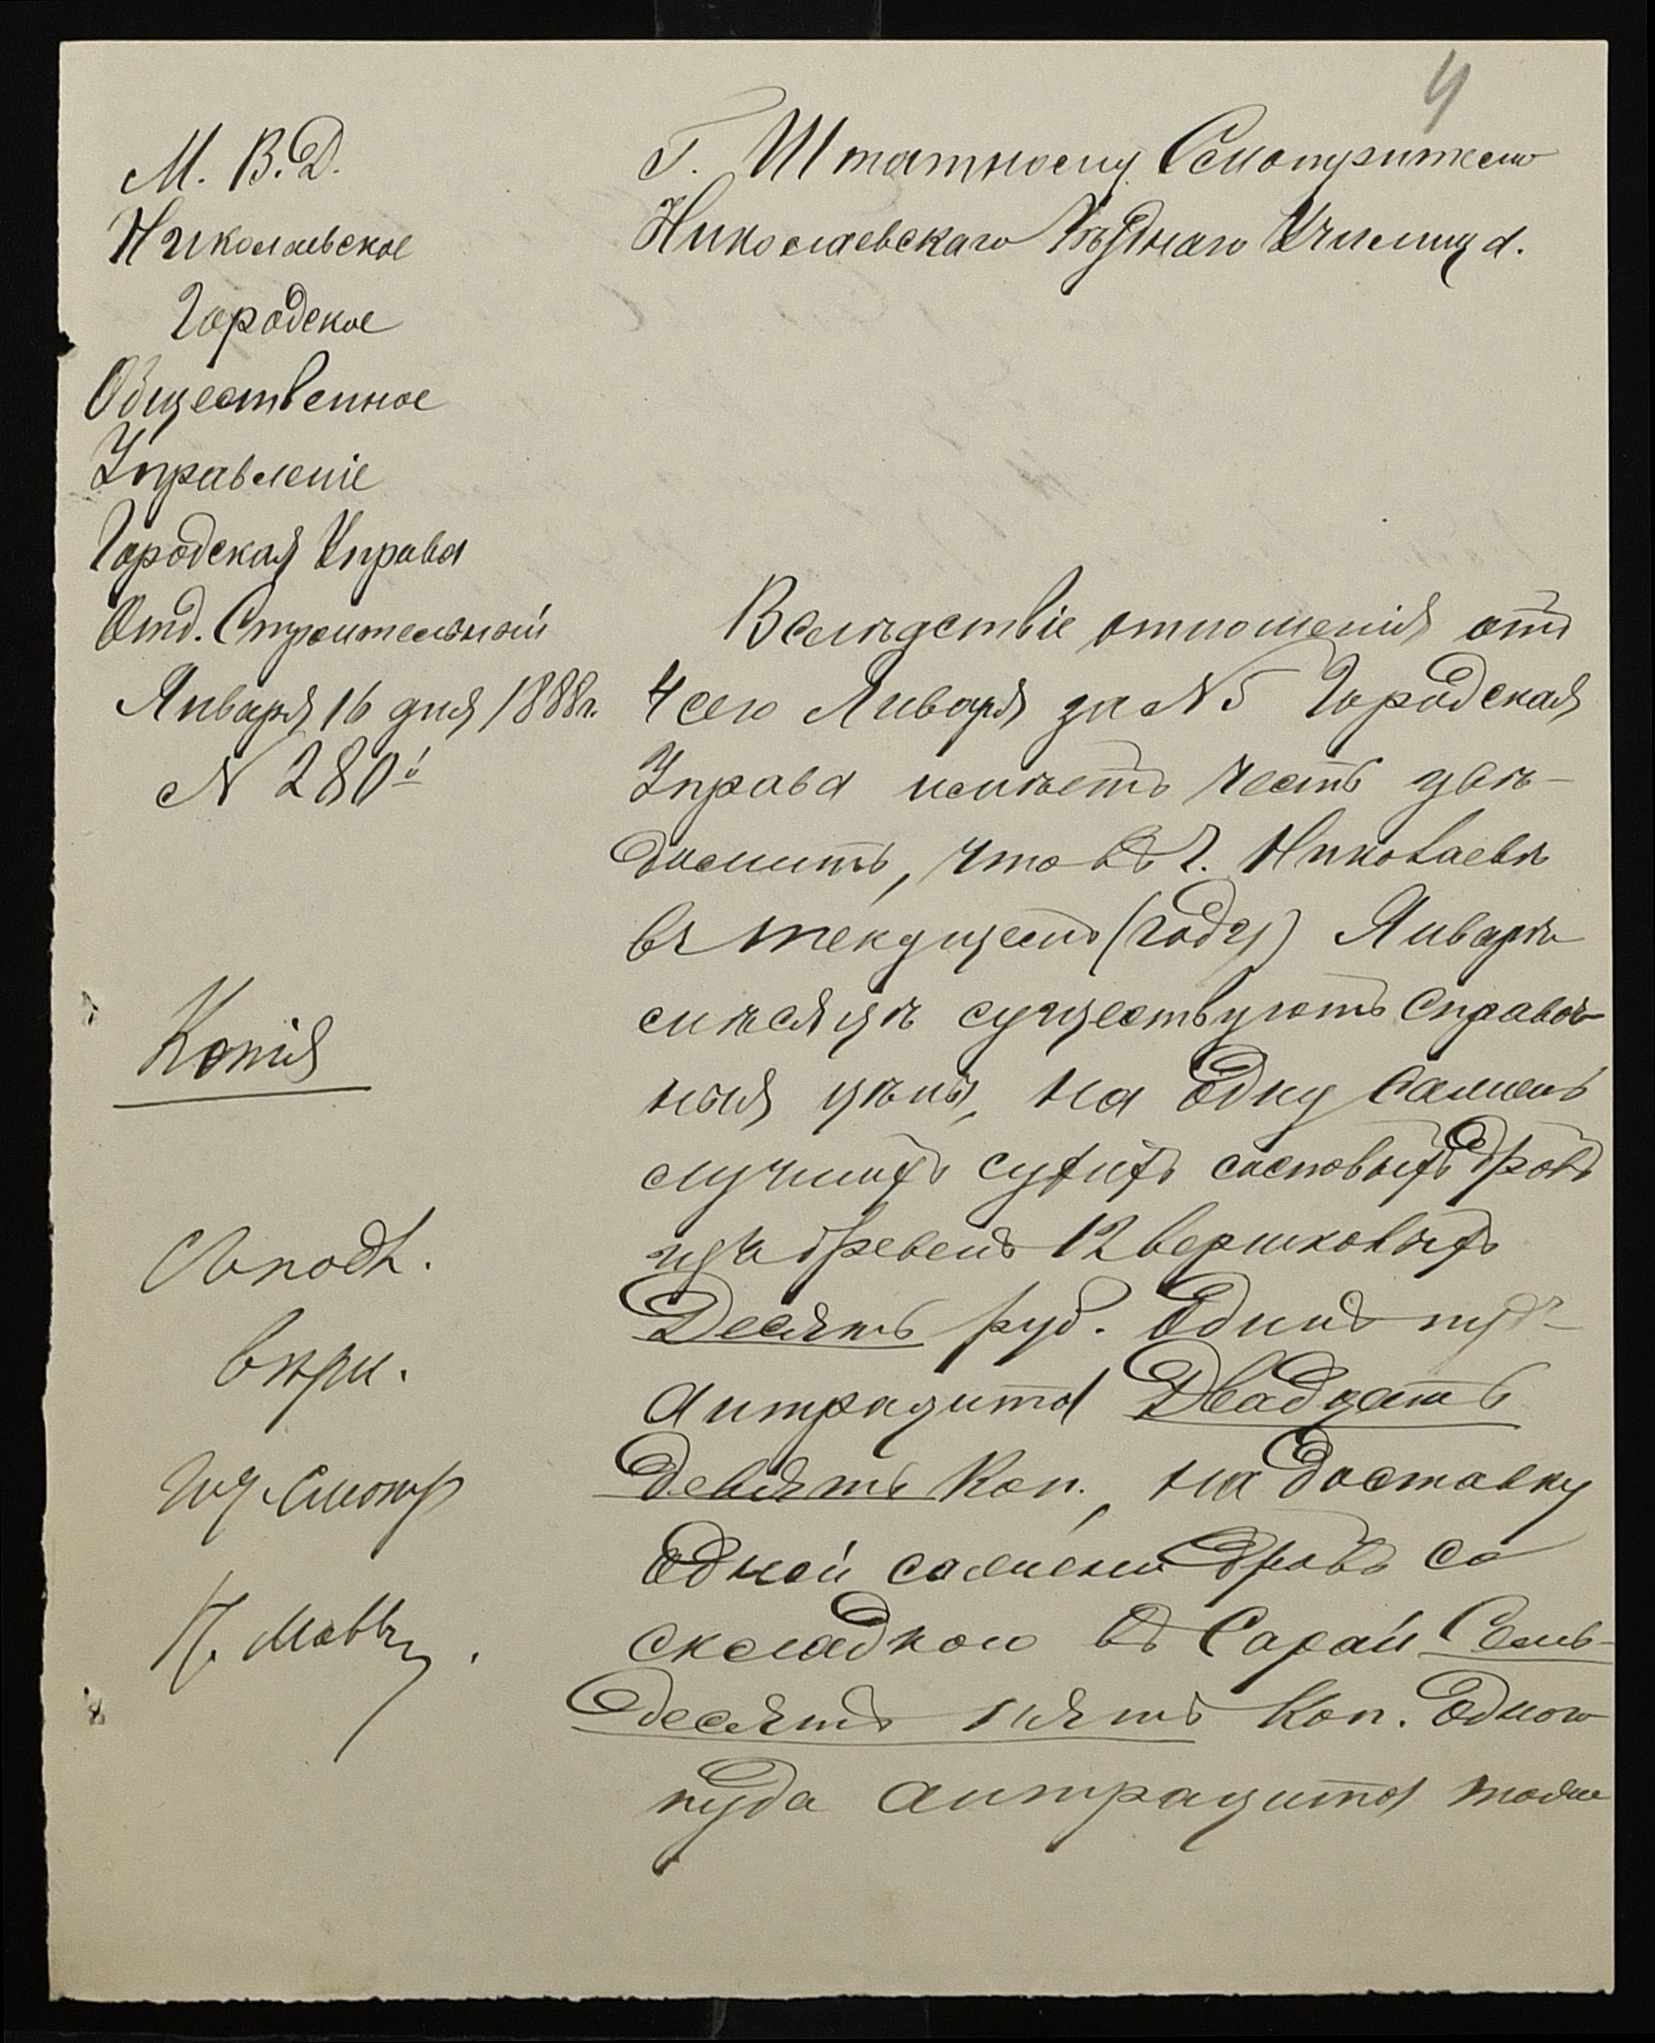 4
М. В. Д.
Николаевское
Городское
Общественное
Управленіе
Городская Управа
Отд. Строительный
Января 16 дня 1888 г.
N 280
Копія
Г. Штатному Смотрителю
Николаевскаго Уѣзднаго Училища.
Вслѣдствіе отношенія отъ
4 сего Января за N 5 Городская
Управа имѣетъ честь увѣ-
домить, что въ г. Николаевѣ
въ текущемъ (году) Январѣ
мѣсяцѣ существуютъ справоч-
ныя цѣны, на одну сажень
лучшихъ сухихъ сосновыхъ дровъ
изъ бревенъ 12 вершковыхъ
Десять руб. Одинъ пудъ
Антрацита Двадцать
девять Коп., на доставку
одной сажени дровъ со
складкою въ Сарай Семь-
десятъ пять Коп. Одного
пуда антрацита тоже
С подл.
вѣрн.
Шт. Смотр